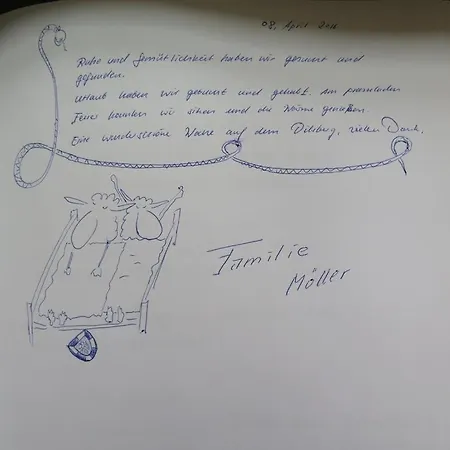 08. April
Ruhe und Gemütlichkeit haben wir gesucht und
gefunden.
Urlaub haben wir gesucht und gehabt. Am prasselnden
Feuer konnten wir sitzen und die Wärme genießen.
Eine wunderschöne Woche auf dem Dilsberg, vielen Dank.
Familie
Möller